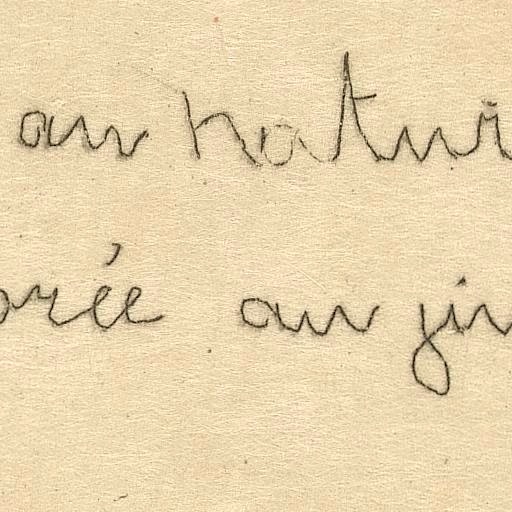 au natur
orée au jin